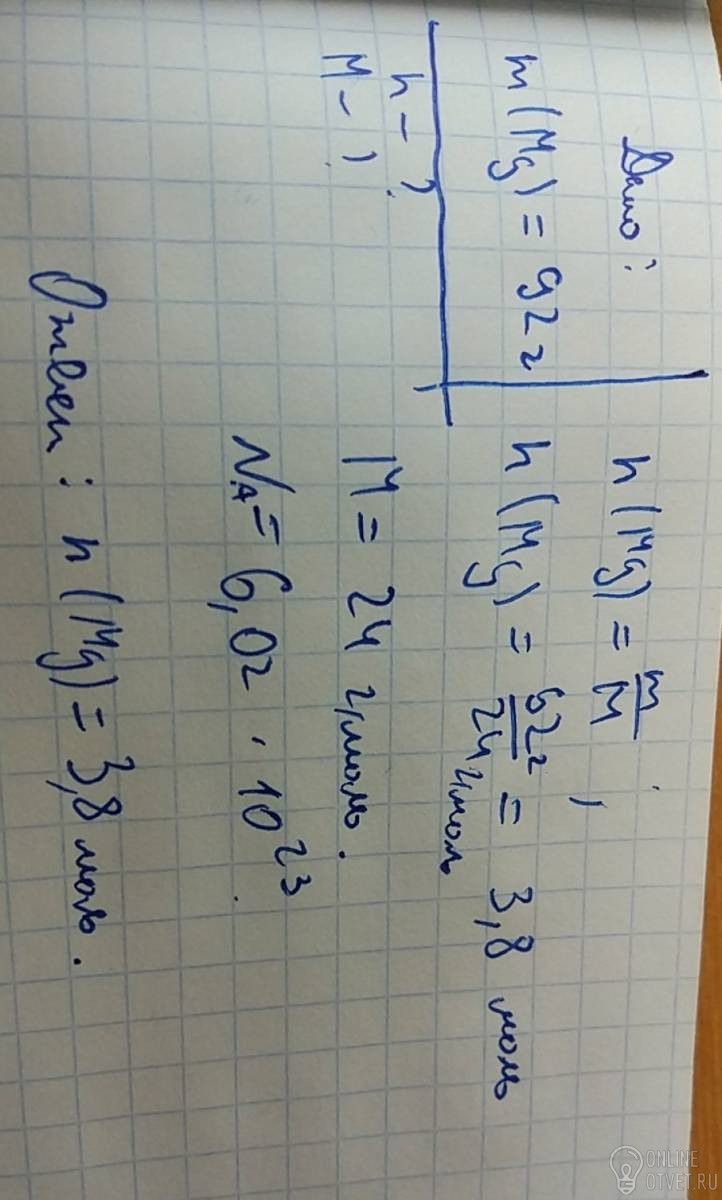 Дано:
m(Mg) = 92 г
n - ?
M - ?
n(Mg) = m/M;
n(Mg) = 92г/24 г/моль = 3,8 моль
M = 24 г/моль.
NA = 6,02 · 10²³.
Ответ: n(Mg) = 3,8 моль.
ONLINE
OTVET.RU